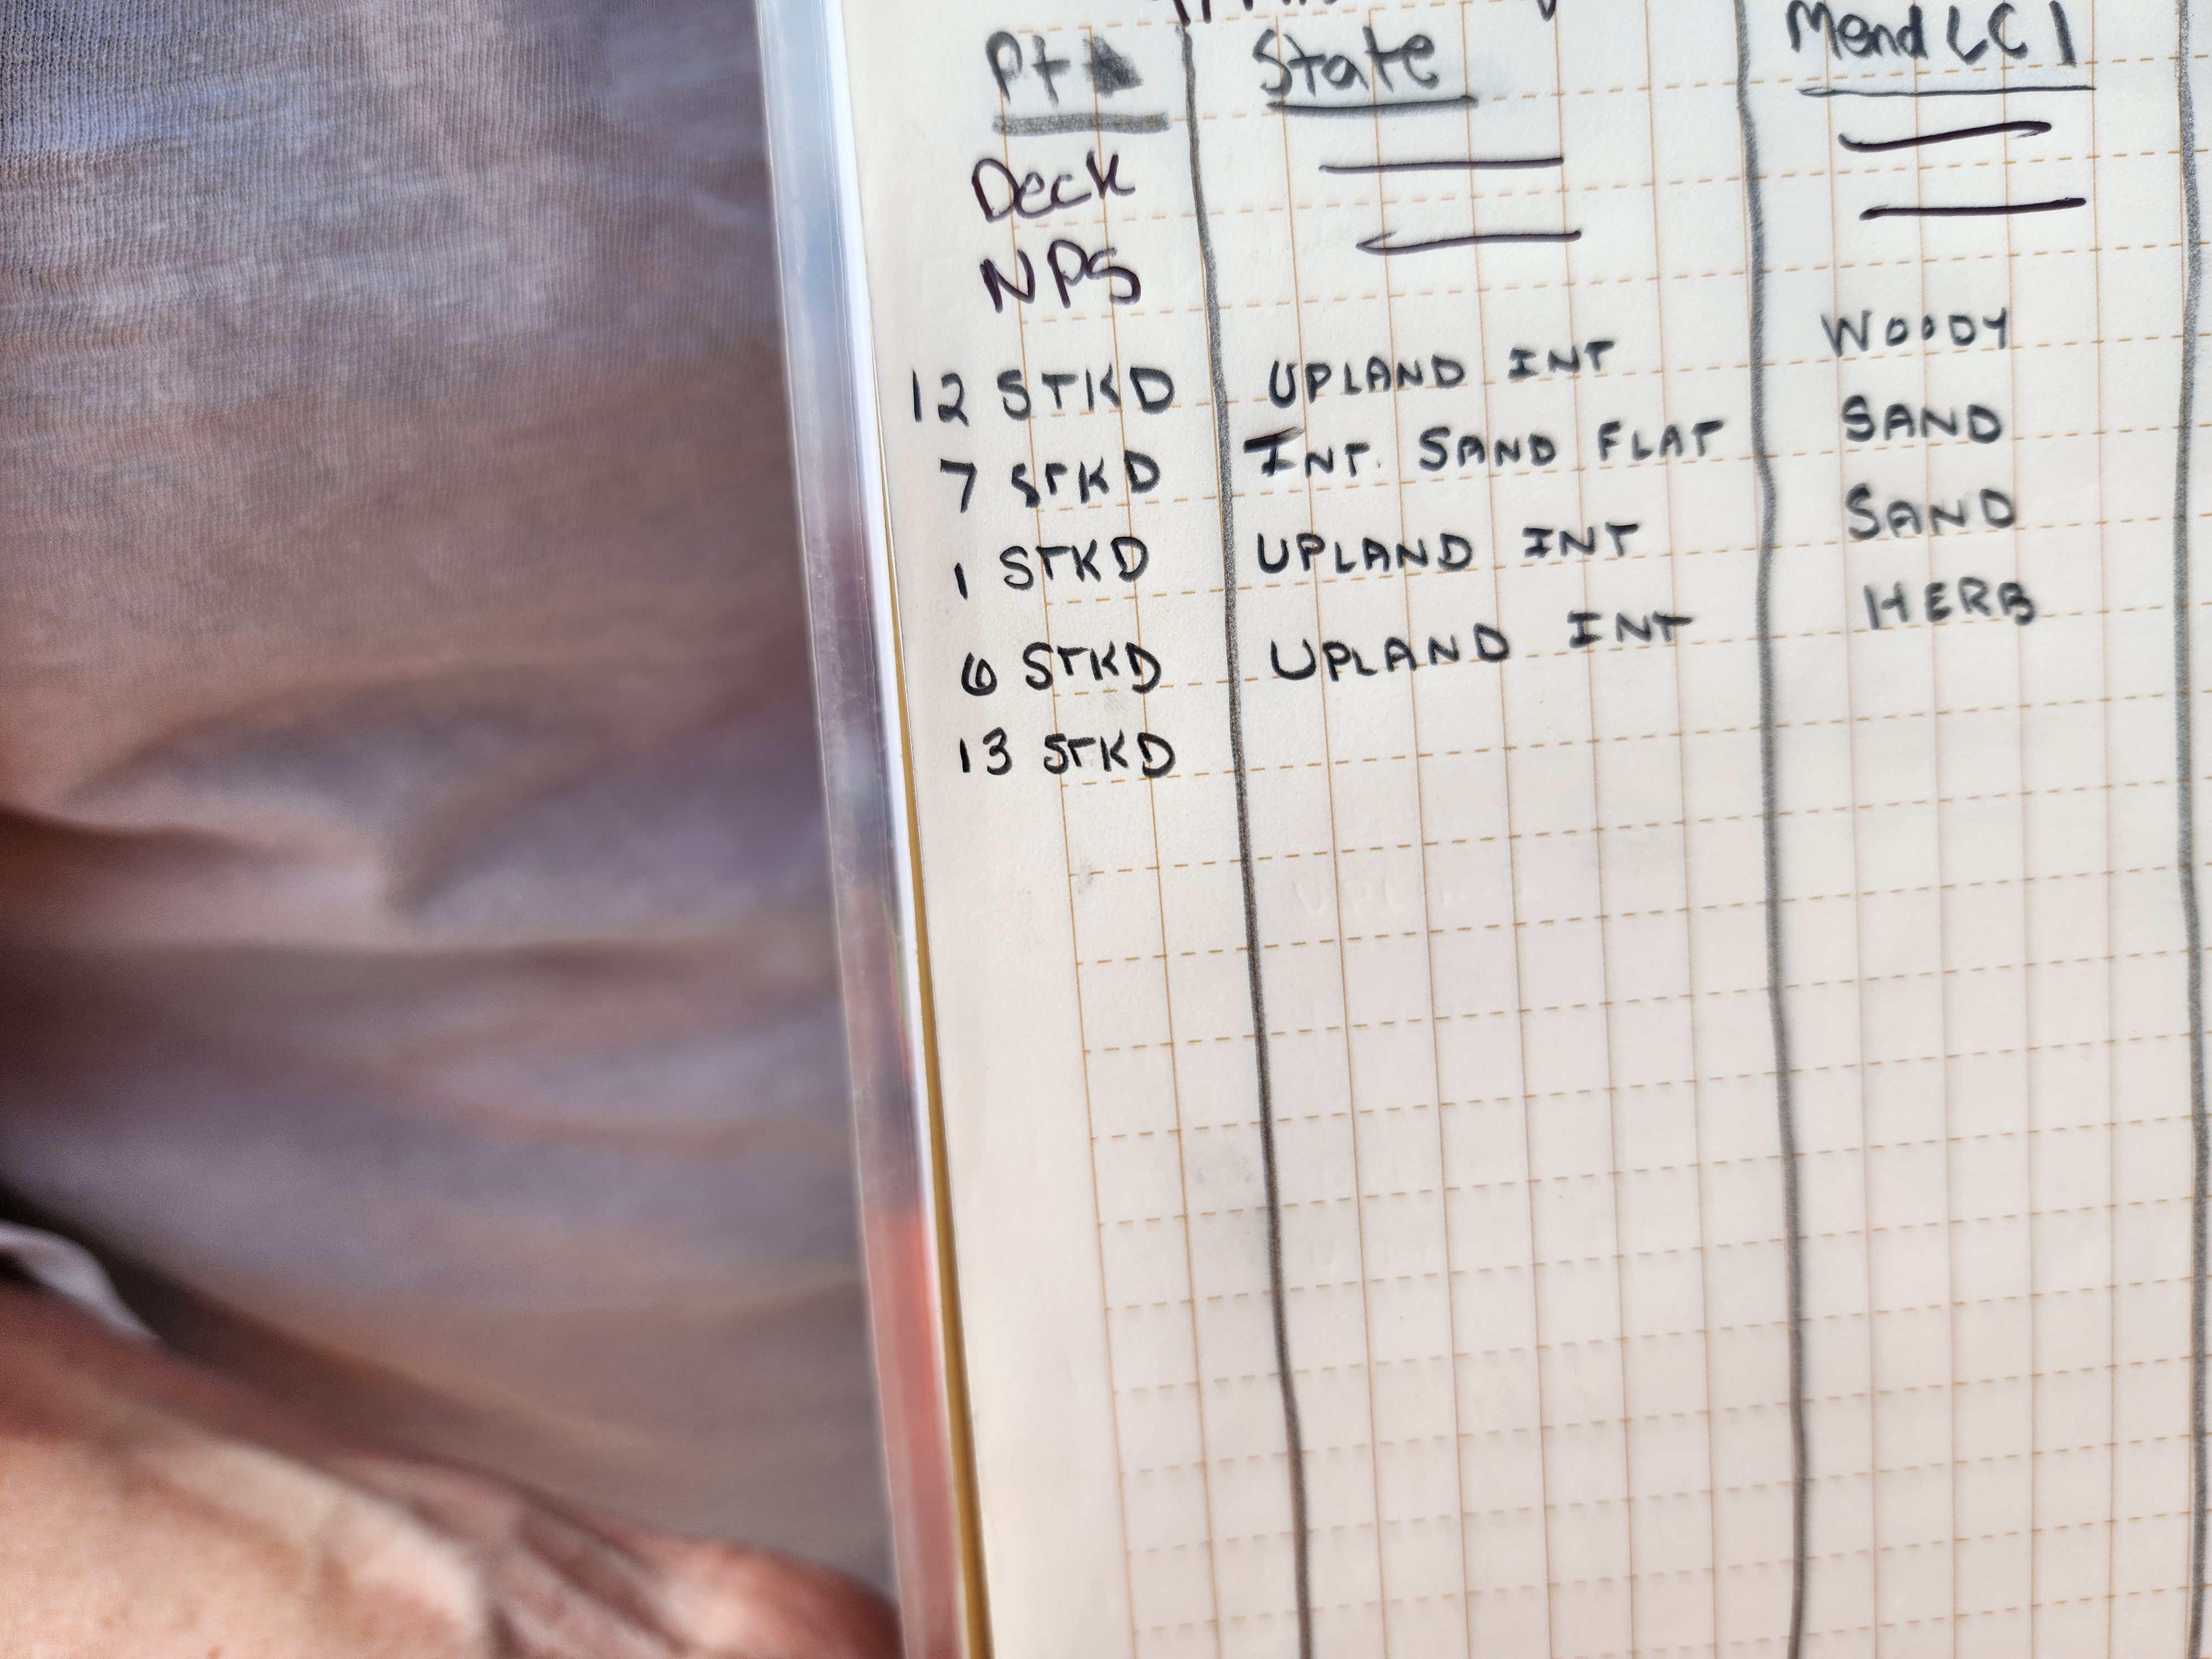 Pt State Mend LC 1
Deck
NPS
12 STKD UPLAND INT WOODY
7 STKD INT. SAND FLAT SAND
1 STKD UPLAND INT SAND
6 STKD UPLAND INT HERB
13 STKD